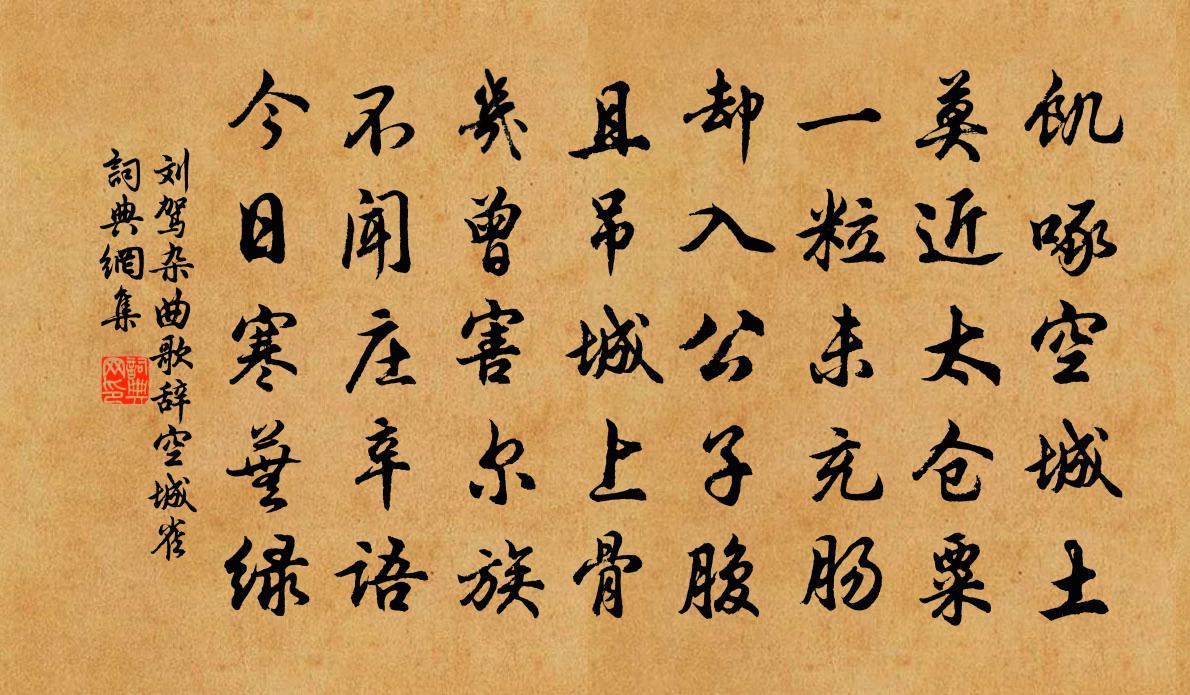 飢啄空城土
莫近太仓粟
一粒未充肠
却入公子腹
且吊城上骨
幾曾害尔族
不闻庄辛语
今日寒蕪绿
刘驾杂曲歌辞空城雀
詞典網集
詞典网印